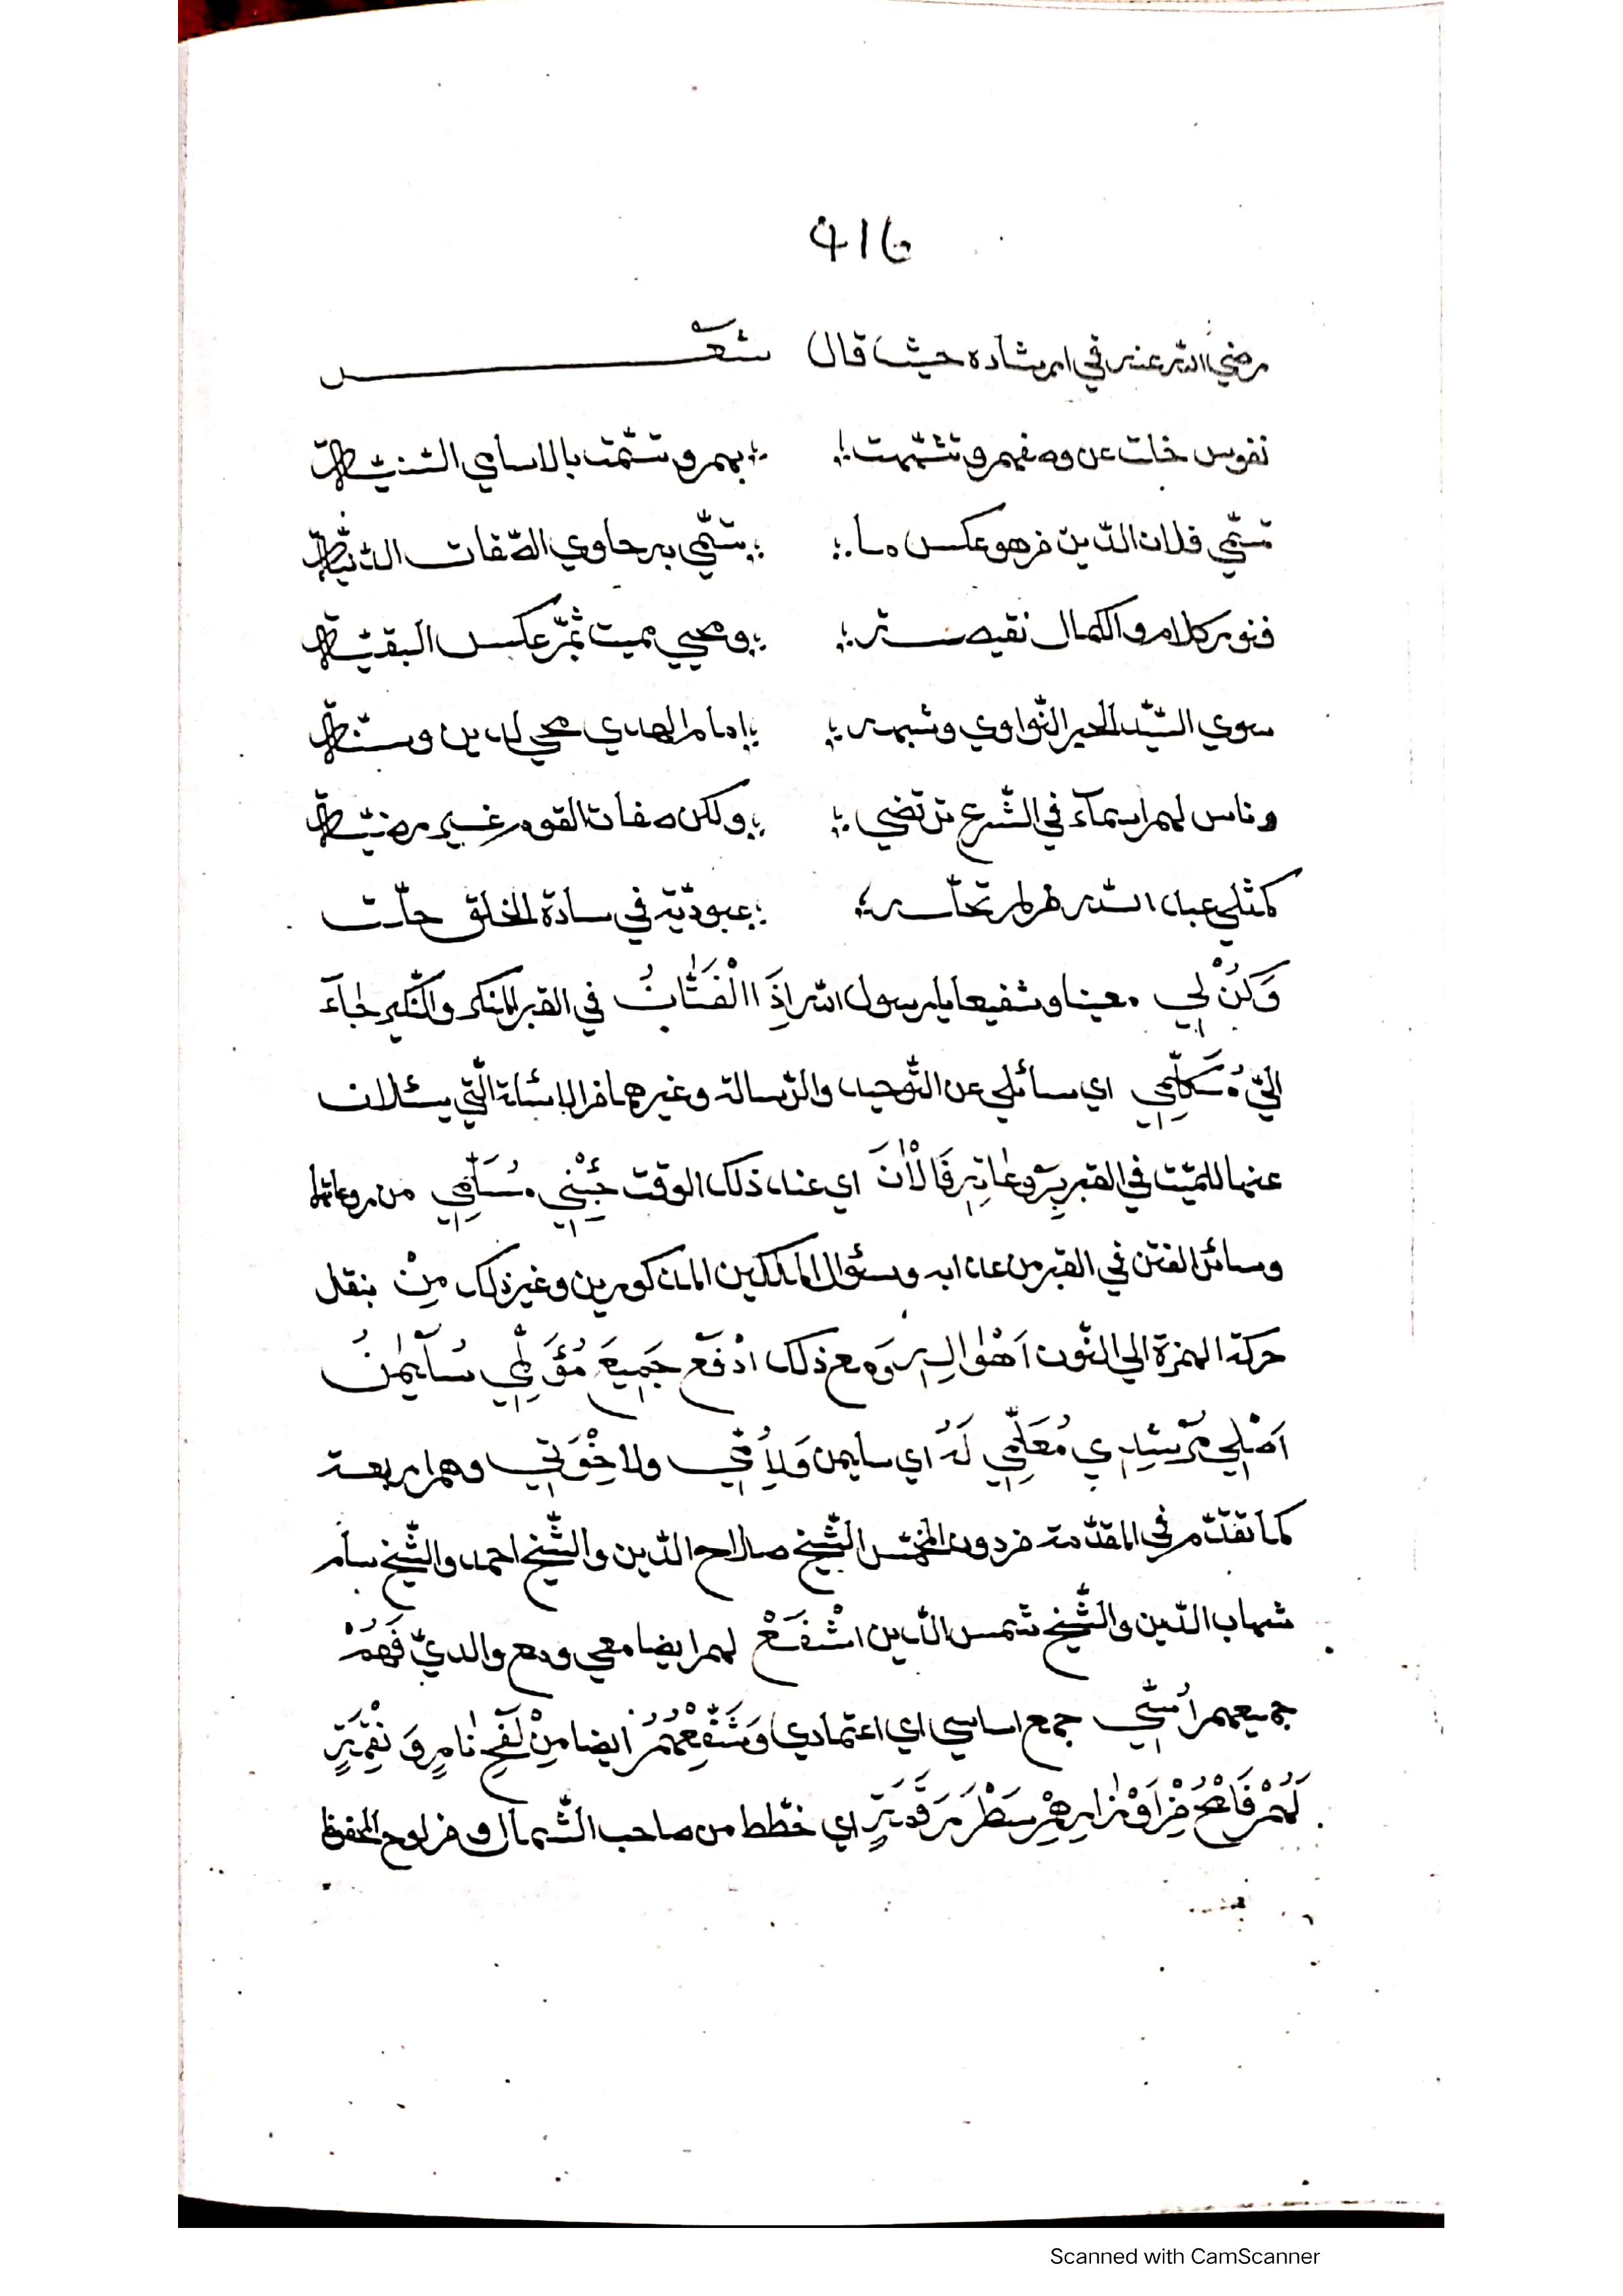 ٩١٦
رضي الله عنه في ارشاده حيث قال شعر
نفوس خلت عن وصفهم وتشبهت ؛ ؛ بهم وتسمت بالاسامي السنية
تسمى فلان الدين فهو عكس ما ؛ ؛ يتسمى به حاوي الصفات الدنية
فنور كلام والكمال نقيصة ؛ ؛ ومحيي مميت ثم عكس البقية
سوي السيد الحبر النواوي وشبهه ؛ ؛ امام الهدي محي لدين وسنة
وناس لهم اسمآء في الشرع ترتضي ؛ ؛ ولكن صفات القوم غير مرضية
كمثلي عبد الله لم تحل ؛ ؛ عبودية في سادة الخلق حلت
وَكُنْ لِي معينا وشفيعا يا رسول الله اِذَا الْفَتَّانُ في القبر المنكر والنكير جآءَ
اليّ مُكَلِّمِي اي سائلي عن التوحيد والرسالة وغيرهما من الاسئلة التي يسئلان
عنها للميت في القبر بِرَوْعَاتِهِ فَالْاٰنَ اي عند ذلك الوقت جِئْنِي مُسَلِّمِي من روعاتها
وسائر الفتن في القبر من عذابه وسئوال الملكين المذكورين وغير ذلك مِنْ بنقل
حركة الهمزة الي النون اَهْوَالِهِ ومع ذلك ادْفَعْ جَمِيعَ مُؤَلِّمِي سُلَيْمٰنُ
اَصْلِي مُرْشِدِي مُعَلِّمِي لَهُ اي سليمن وَلِاُمِّي ولاِخْوَتِي وهم اربعة
كما تقدم في المقدمة من دون المخمس الشيخ صلاح الدين والشيخ احمد والشيخ سام
شهاب الدين والشيخ شمس الدين اشْفَعْ لهم ايضا معي ومع والديّ فَهُمْ
جميعهم اُسِّي جمع اساسي اي اعتمادي وَشَفِّعْهُمُ ايضا مِنْ لَفْحِ نَارٍ وَنِقْمَةٍ
لَهُمْ فَامْحُ مِنْ اَوْزَارِهِمْ سَطْرَ مَرْقَدَةٍ اي خطط من صاحب الشمال ومن لوح المحفوظ
Scanned with CamScanner